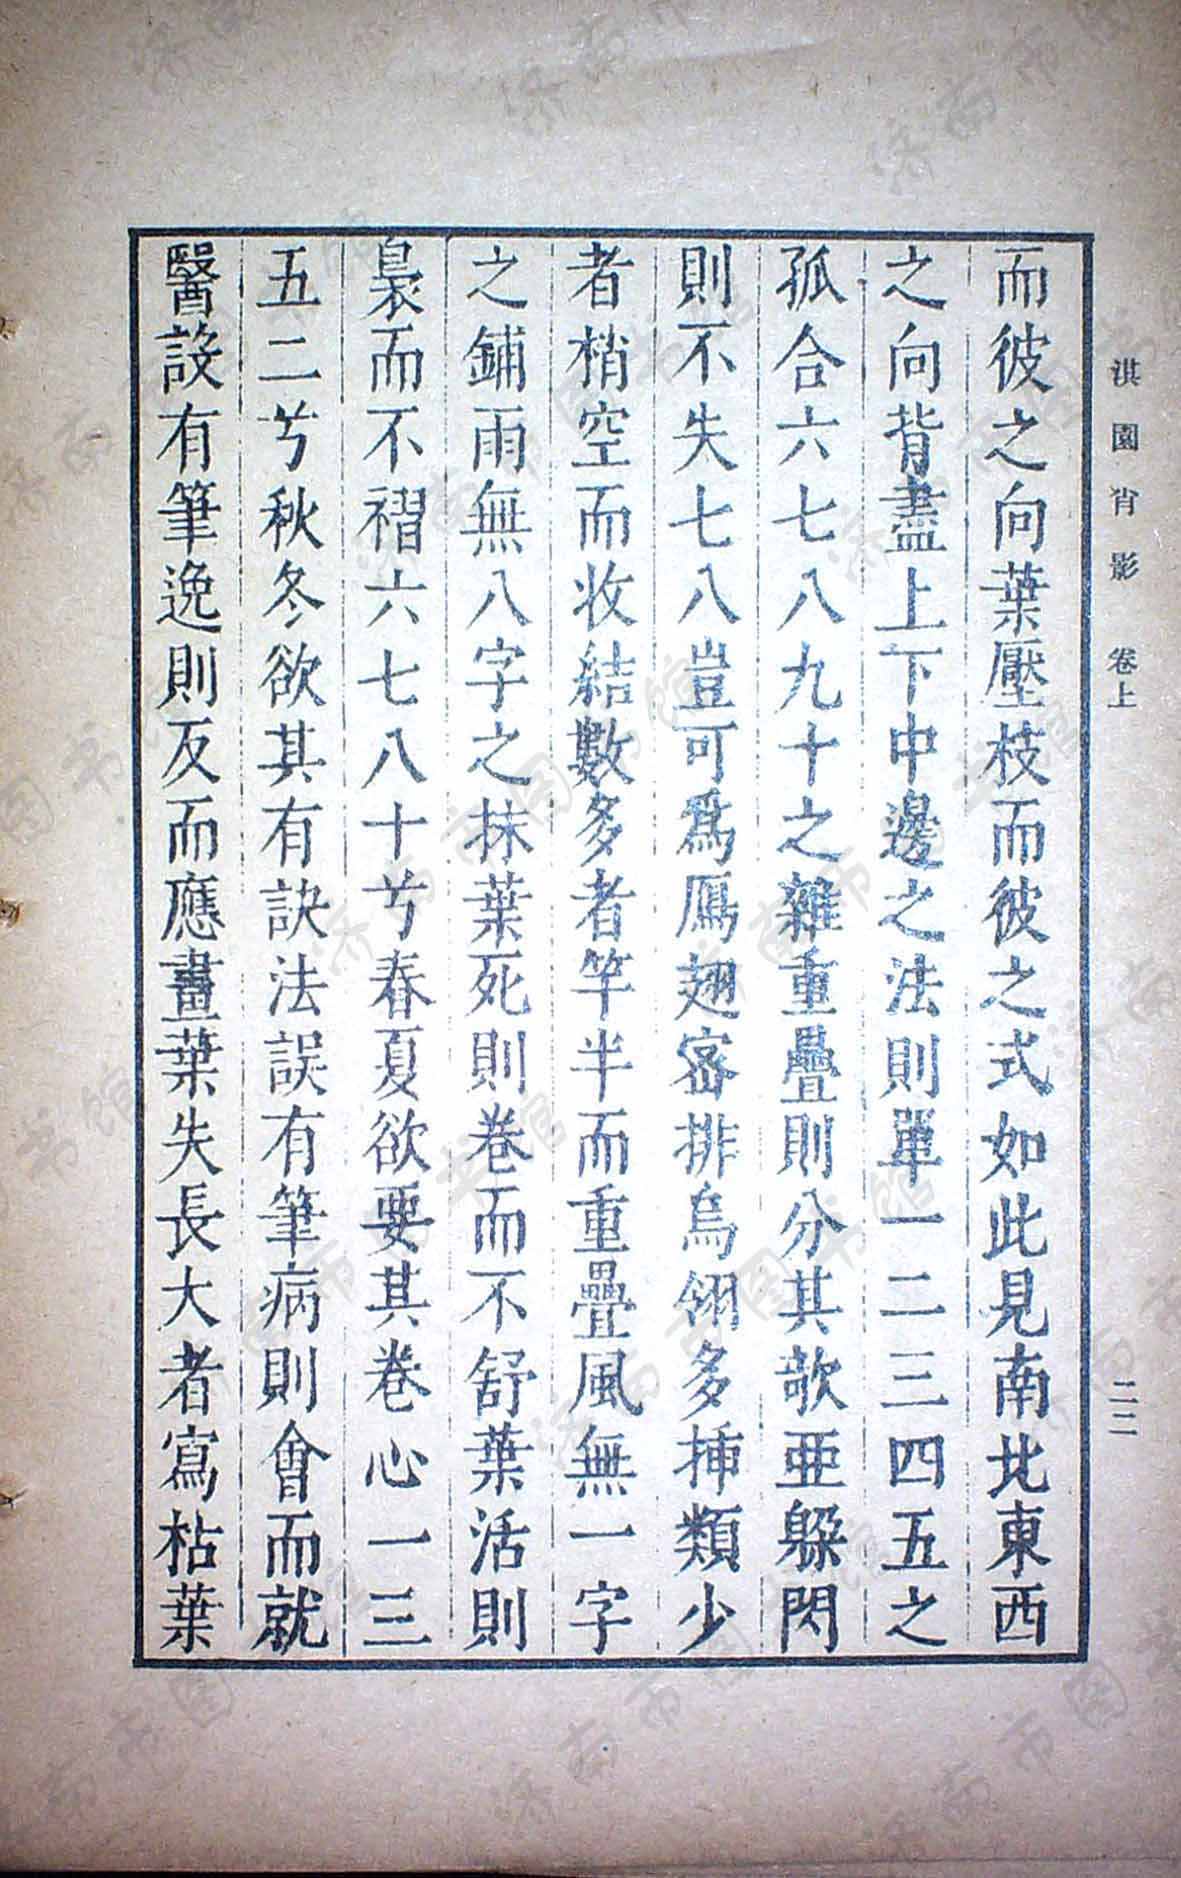 淇園肖影 卷上
二二
而彼之向葉壓枝而彼之式如此見南北東西
之向背盡上下中邊之法則單一二三四五之
孤合六七八九十之雜重疊則分其歌亞躲閃
則不失七八豈可爲鴈翅密排烏翎多揷類少
者梢空而收結數多者竿半而重疊風無一字
之鋪雨無八字之抹葉死則卷而不舒葉活則
裊而不褶六七八十兮春夏欲要其卷心一三
五二兮秋冬欲其有訣法誤有筆病則會而就
醫設有筆逸則反而應畫葉失長大者寫枯葉